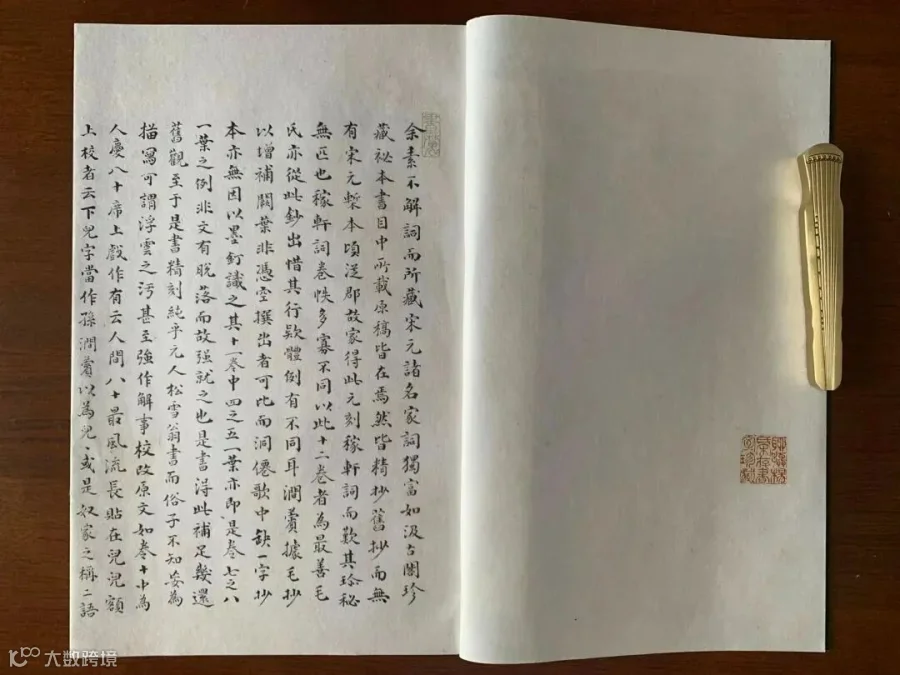 余素不解詞而所藏宋元諸名家詞獨富如汲古閣珍
藏祕本書目中所載原稿皆在焉然皆精抄舊抄而無
有宋元槧本頃從郡故家得此元刻稼軒詞而歎其珍秘
無匹也稼軒詞卷帙多寡不同以此十二卷者為最善毛
氏亦從此鈔出惜其行款體例有不同耳澗薲據毛抄
以增補闕葉非憑空撰出者可比而洞僊歌中缺一字抄
本亦無因以墨釘識之其十一卷中四之五一葉亦即是卷七之八
一葉之例非文有脫落而故强就之也是書得此補足幾還
舊觀至于是書精刻純乎元人松雪翁書而俗子不知妄為
描寫可謂浮雲之汚甚至強作解事校改原文如卷十中為
人慶八十席上戲作有云人間八十最風流長貼在兒兒額
上校者云下兒字當作孫澗薲以為兒〻或是奴家之稱二語
大数跨境